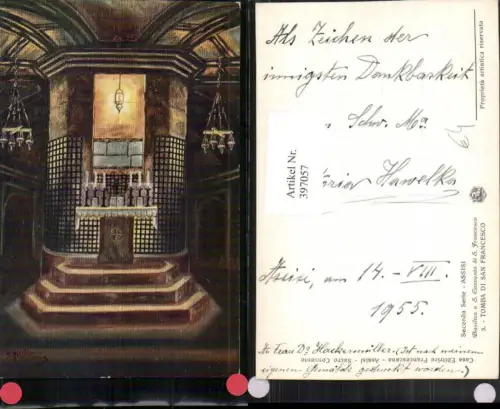 Als Zeichen der
innigsten Dankbarkeit
Schw. Ma
ria Hawelka
Assisi, am 14. - VIII.
1955.
An Frau Dr Hackermüller. (Ist nach meinem
eigenen Gemälde gedruckt worden.)
Artikel Nr.
397057
Proprietà artistica riservata
Seconda Serie - ASSISI
Basilica e S. Convento di S. Francesco
3. - TOMBA DI SAN FRANCESCO
Casa Editrice Francescana - Assisi - Sacro Convento